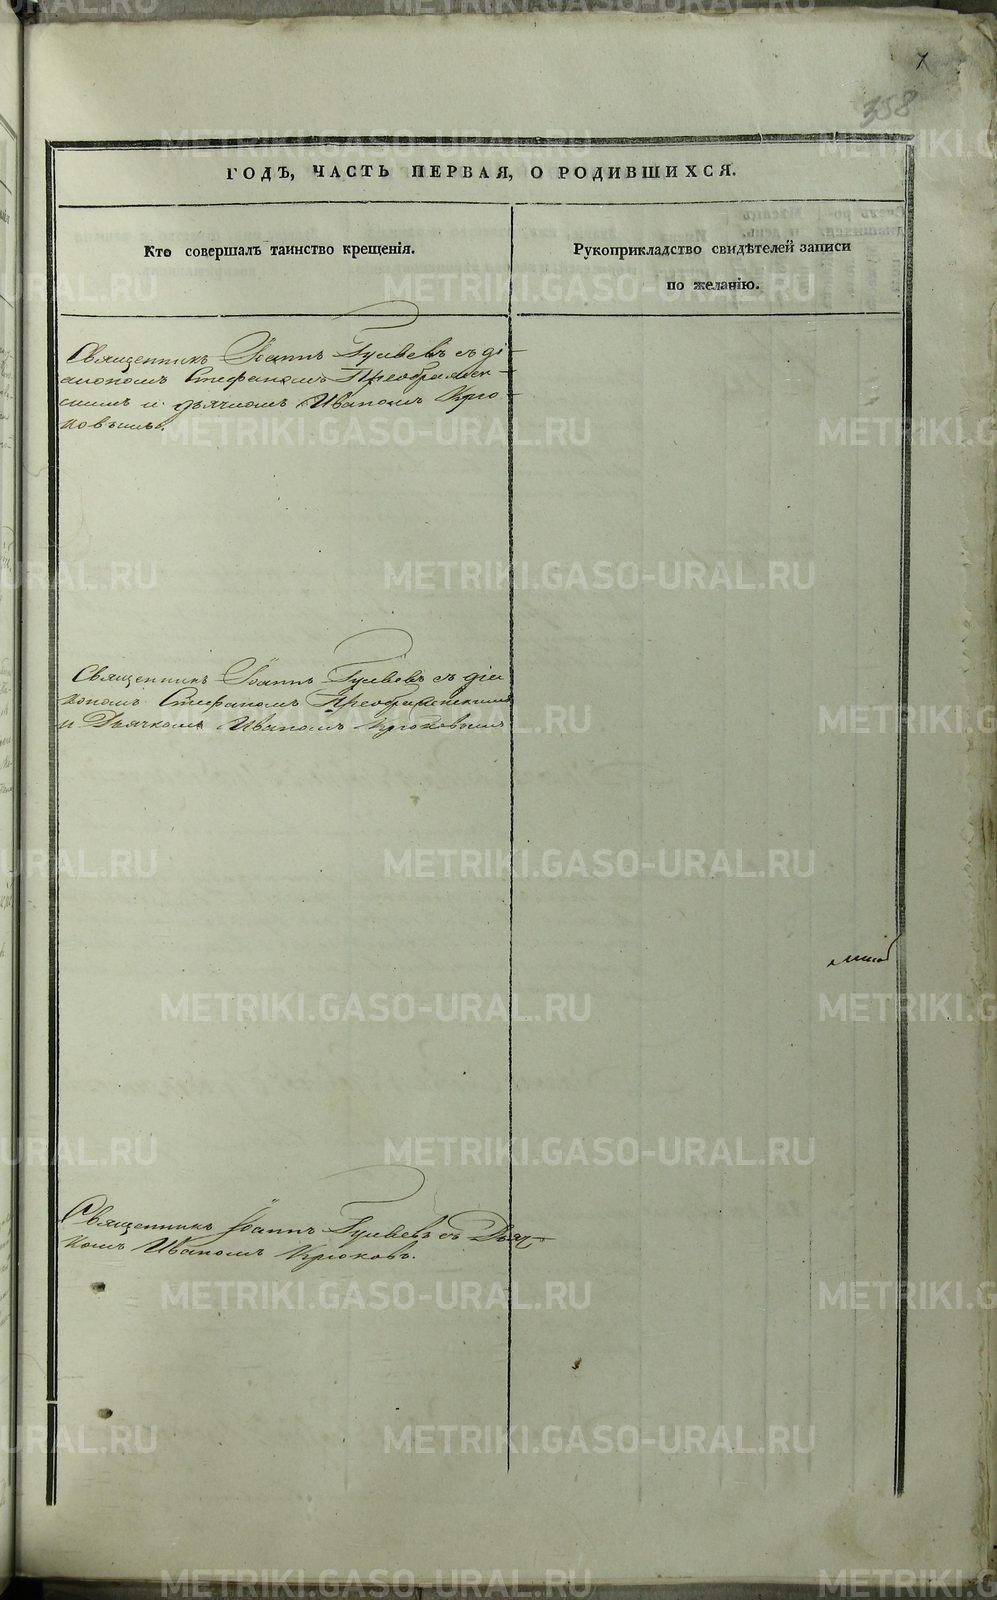 358
ГОДЪ, ЧАСТЬ ПЕРВАЯ, О РОДИВШИХСЯ.
Кто совершалъ таинство крещенія.
Рукоприкладство свидѣтелей записи
по желанію.
Священникъ Іоаннъ Гуляевъ съ ді-
акономъ Стефаномъ Преображен-
скимъ и дьячкомъ Иваномъ Крю-
ковымъ.
Священникъ Іоаннъ Гуляевъ съ діа
кономъ Стефаномъ Преображенскимъ
и Дьячкомъ Иваномъ Крюковымъ
Священникъ Іоаннъ Гуляевъ съ Дьяч-
комъ Иваномъ Крюковъ.
METRIKI.GASO-URAL.RU